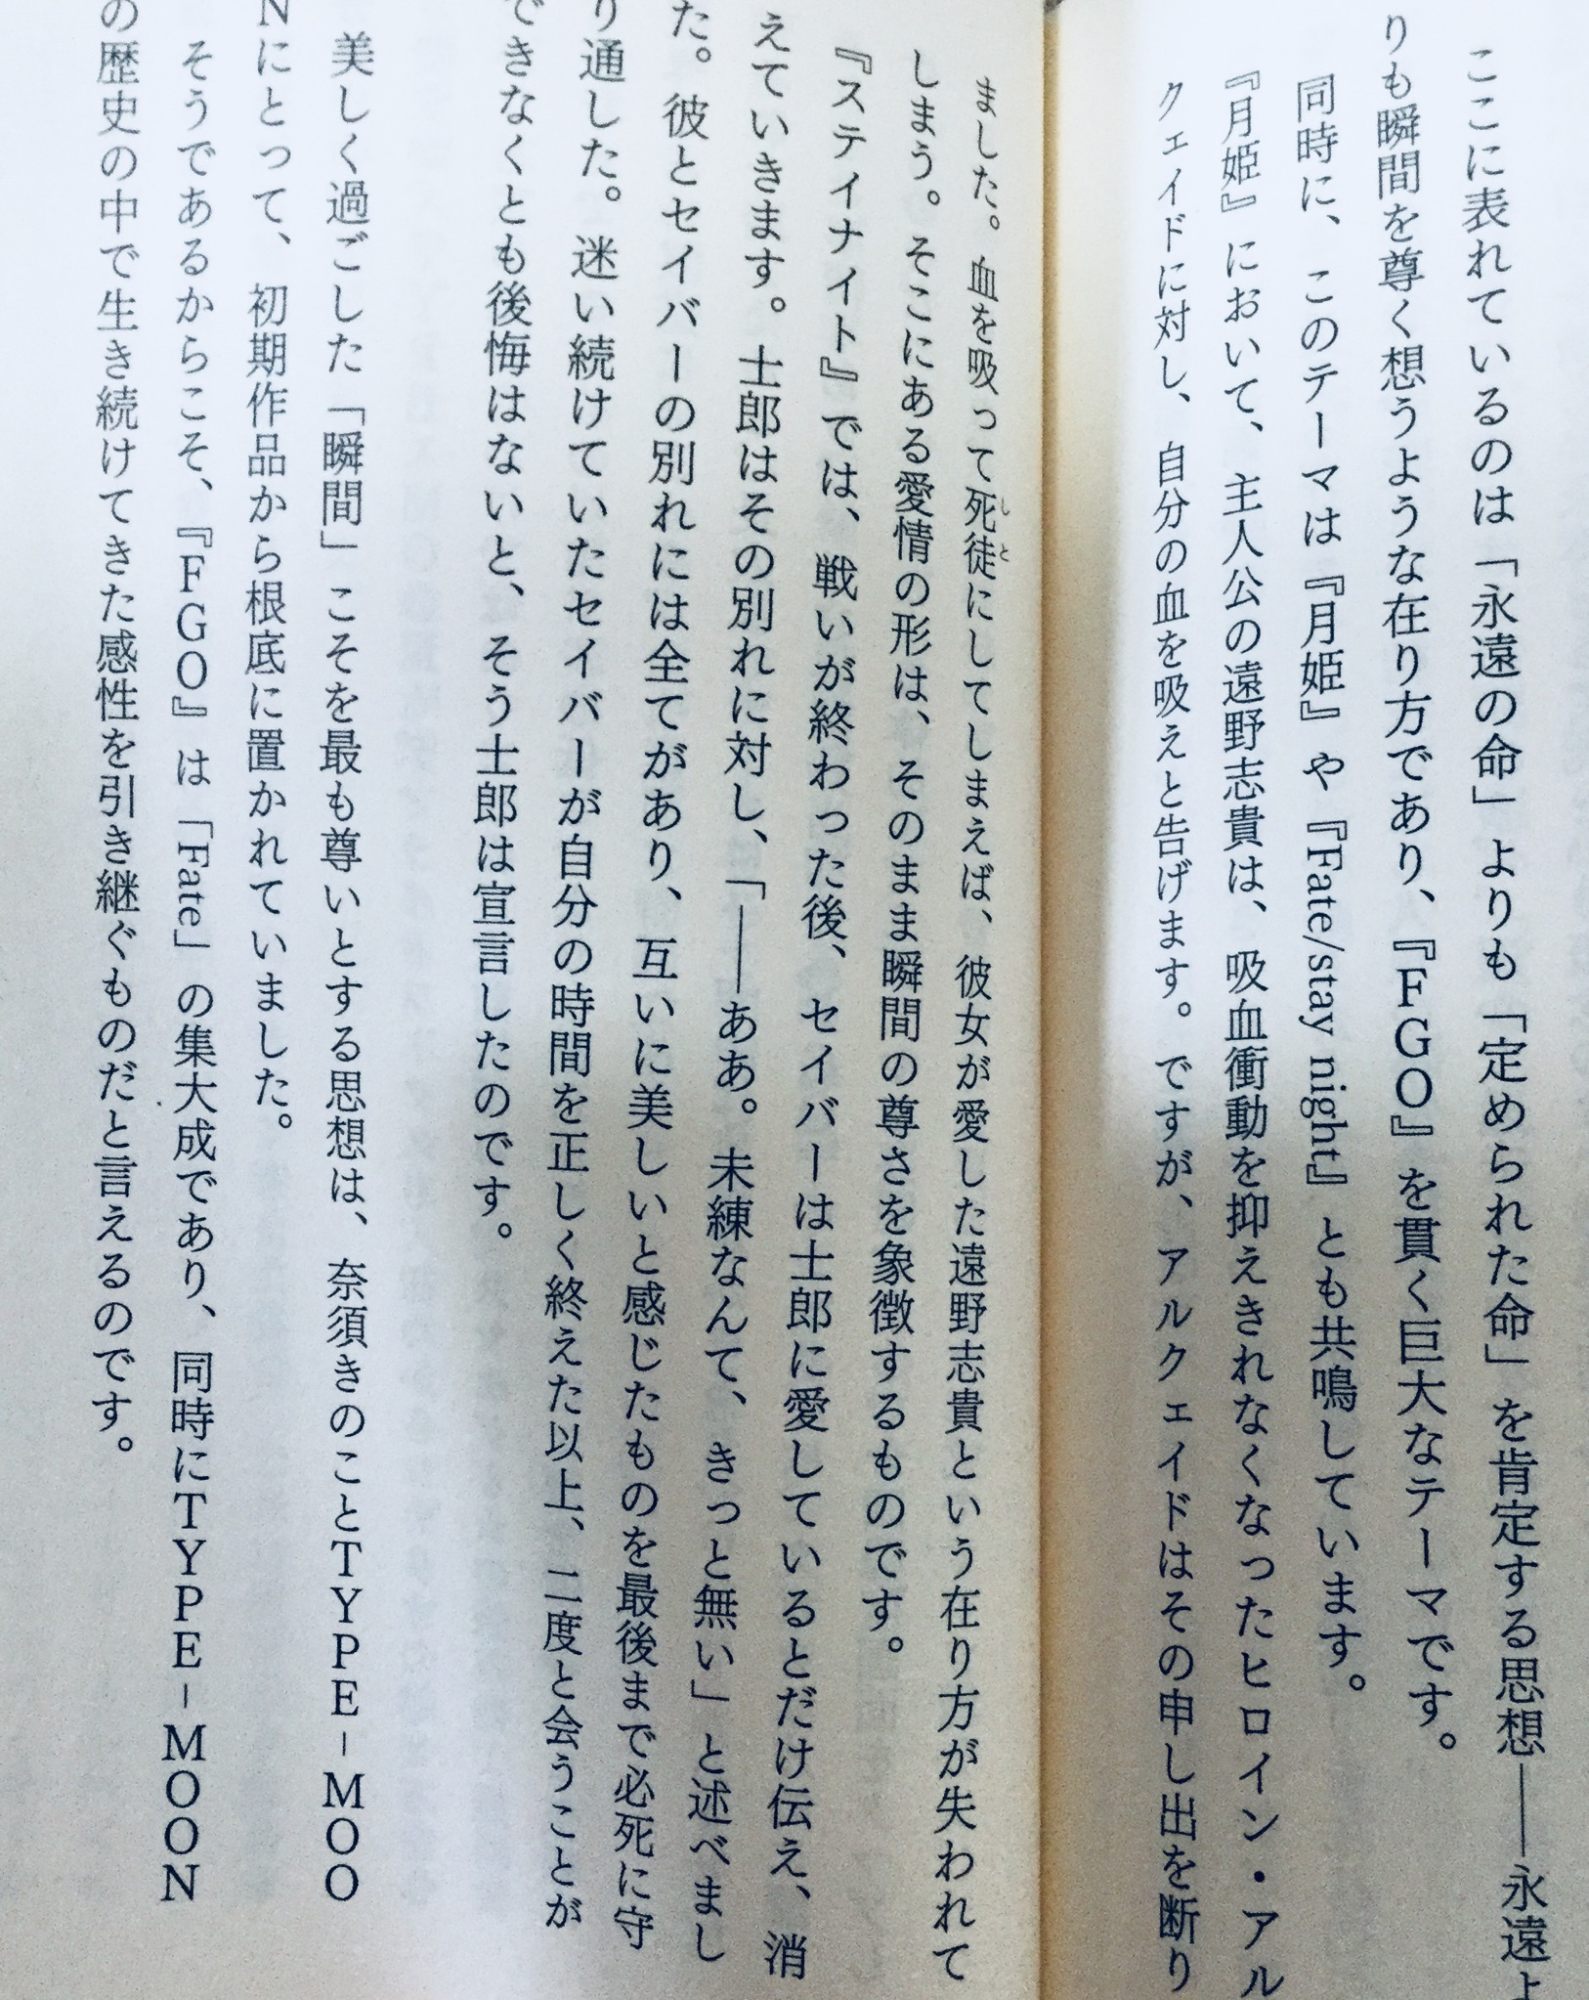 ここに表れているのは「永遠の命」よりも「定められた命」を肯定する思想――永遠よ
りも瞬間を尊く想うような在り方であり、『FGO』を貫く巨大なテーマです。
同時に、このテーマは『月姫』や『Fate/stay night』とも共鳴しています。
『月姫』において、主人公の遠野志貴は、吸血衝動を抑えきれなくなったヒロイン・アル
クェイドに対し、自分の血を吸えと告げます。ですが、アルクェイドはその申し出を断り
ました。血を吸って死徒にしてしまえば、彼女が愛した遠野志貴という在り方が失われて
しまう。そこにある愛情の形は、そのまま瞬間の尊さを象徴するものです。
『ステイナイト』では、戦いが終わった後、セイバーは士郎に愛しているとだけ伝え、消
えていきます。士郎はその別れに対し、「――ああ。未練なんて、きっと無い」と述べまし
た。彼とセイバーの別れには全てがあり、互いに美しいと感じたものを最後まで必死に守
り通した。迷い続けていたセイバーが自分の時間を正しく終えた以上、二度と会うことが
できなくとも後悔はないと、そう士郎は宣言したのです。
美しく過ごした「瞬間」こそを最も尊いとする思想は、奈須きのことTYPE-MOO
Nにとって、初期作品から根底に置かれていました。
そうであるからこそ、『FGO』は「Fate」の集大成であり、同時にTYPE-MOON
の歴史の中で生き続けてきた感性を引き継ぐものだと言えるのです。